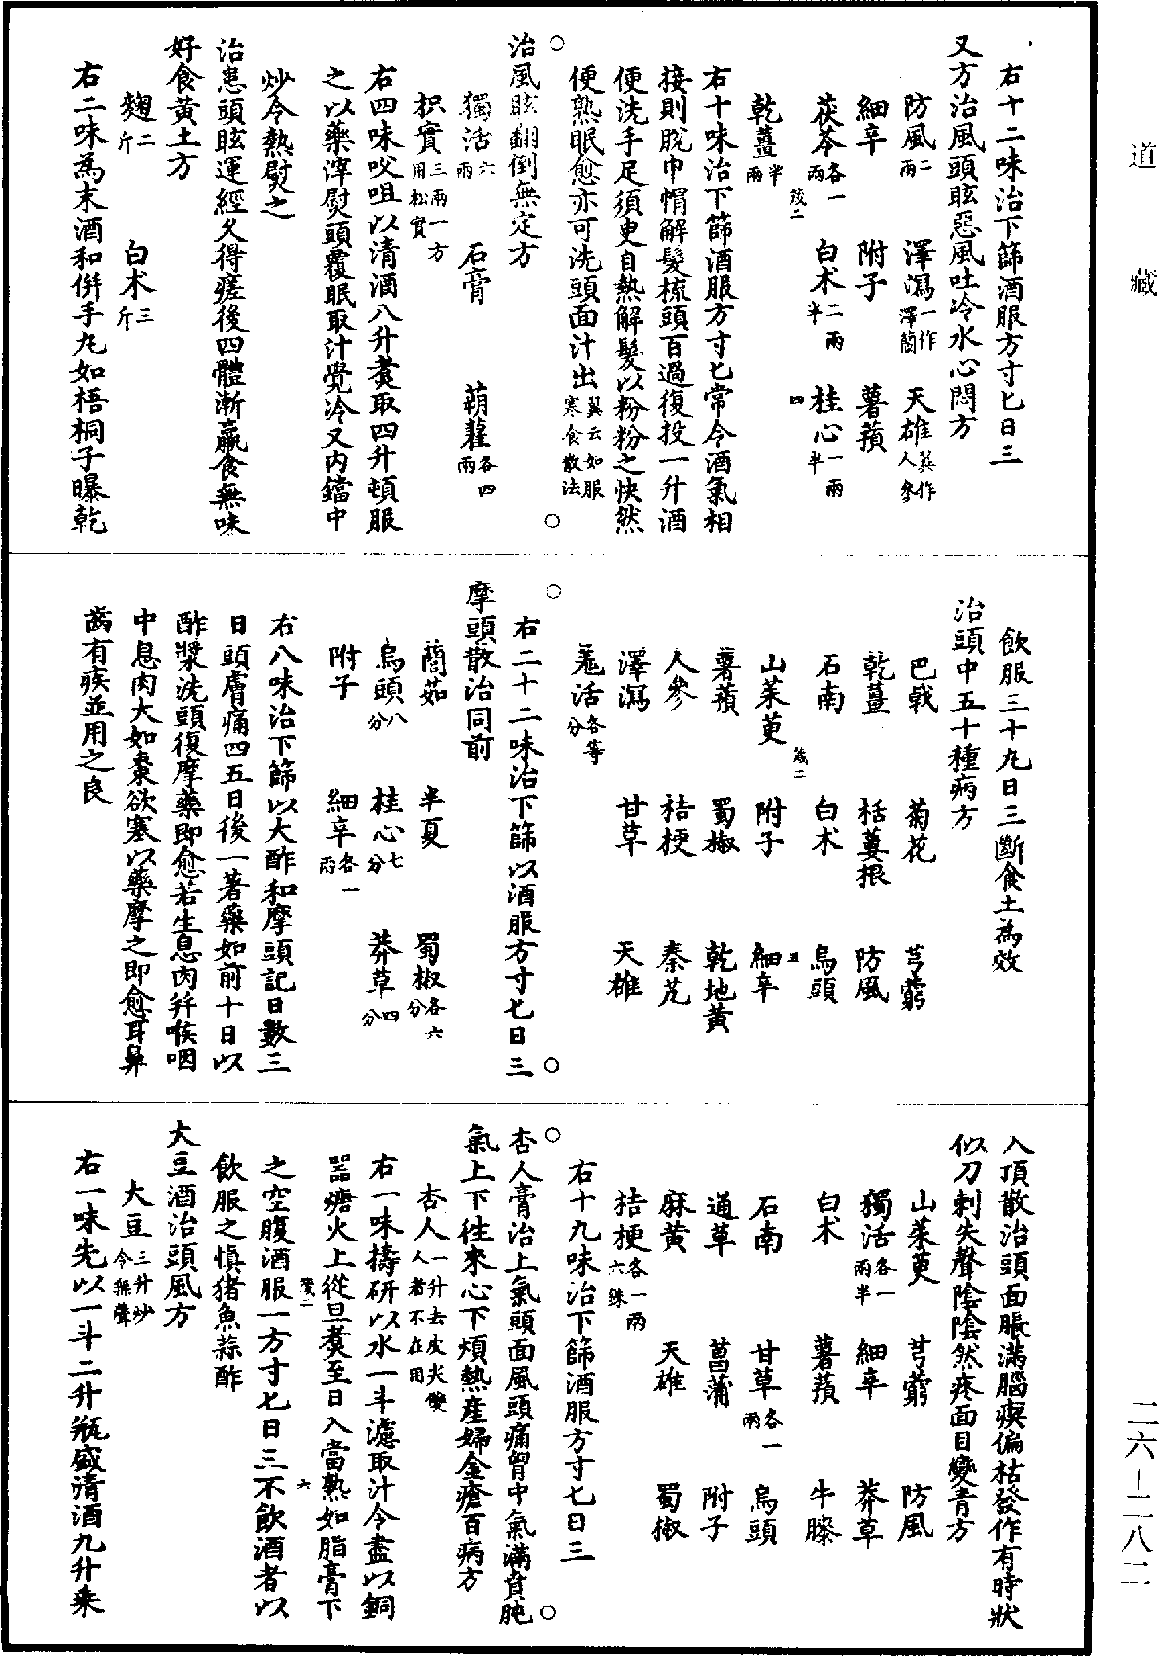 道藏
右十二味治下篩酒服方寸匕日三
又方治風頭眩惡風吐冷水心悶方
防風二兩　澤瀉一作澤蘭　天雄英作人參
細辛　附子　薯蕷
茯苓各一兩　白术二兩半　桂心一兩半
乾薑半兩
右十味治下篩酒服方寸匕常令酒氣相
接則脫巾帽解髮梳頭百過復投一升酒
便洗手足須更自熱解髮以粉粉之快然
便熟眠愈亦可洗頭面汁出翼云如服寒食散法
治風眩翻倒無定方
獨活六兩　石膏　蒴藋各四兩
枳實三兩一方用松實
右四味㕮咀以清酒八升煑取四升頓服
之以藥滓熨頭覆眠取汁覺冷又內鐺中
炒令熱熨之
治患頭眩運經久得瘥後四體漸羸食無味
好食黃土方
麴二斤　白术三斤
右二味為末酒和併手丸如梧桐子曝乾
飲服三十丸日三斷食土為效
治頭中五十種病方
巴戟　菊花　芎藭
乾薑　栝蔞根　防風
石南　白术　烏頭
山茱萸　附子　細辛
薯蕷　蜀椒　乾地黃
人參　桔梗　秦艽
澤瀉　甘草　天雄
羌活各等分
右二十二味治下篩以酒服方寸匕日三
摩頭散治同前
䕡茹　半夏　蜀椒各六分
烏頭八分　桂心七分　莽草四分
附子　細辛各一兩
右八味治下篩以大酢和摩頭記日數三
日頭膚痛四五日後一著藥如前十日以
酢漿洗頭復摩藥即愈若生息肉幷喉咽
中息肉大如棗欲塞以藥摩之即愈耳鼻
齒有疾並用之良
入頂散治頭面脹滿腦瘈偏枯發作有時狀
似刀刺失聲陰陰然疼面目變青方
山茱萸　芎藭　防風
獨活各一兩半　細辛　莽草
白术　薯蕷　牛膝
石南　甘草各一兩　烏頭
通草　菖蒲　附子
麻黃　天雄　蜀椒
桔梗各一兩六銖
右十九味治下篩酒服方寸匕日三
杏人膏治上氣頭面風頭痛胷中氣滿賁肫
氣上下往來心下煩熱產婦金瘡百病方
杏人一升去皮尖雙人者不在用
右一味擣研以水一斗濾取汁令盡以銅
器煻火上從旦煑至日入當熟如脂膏下
之空腹酒服一方寸匕日三不飲酒者以
飲服之慎豬魚蒜酢
大豆酒治頭風方
大豆三升炒令無聲
右一味先以一斗二升瓶盛清酒九升乘
二六—二八二